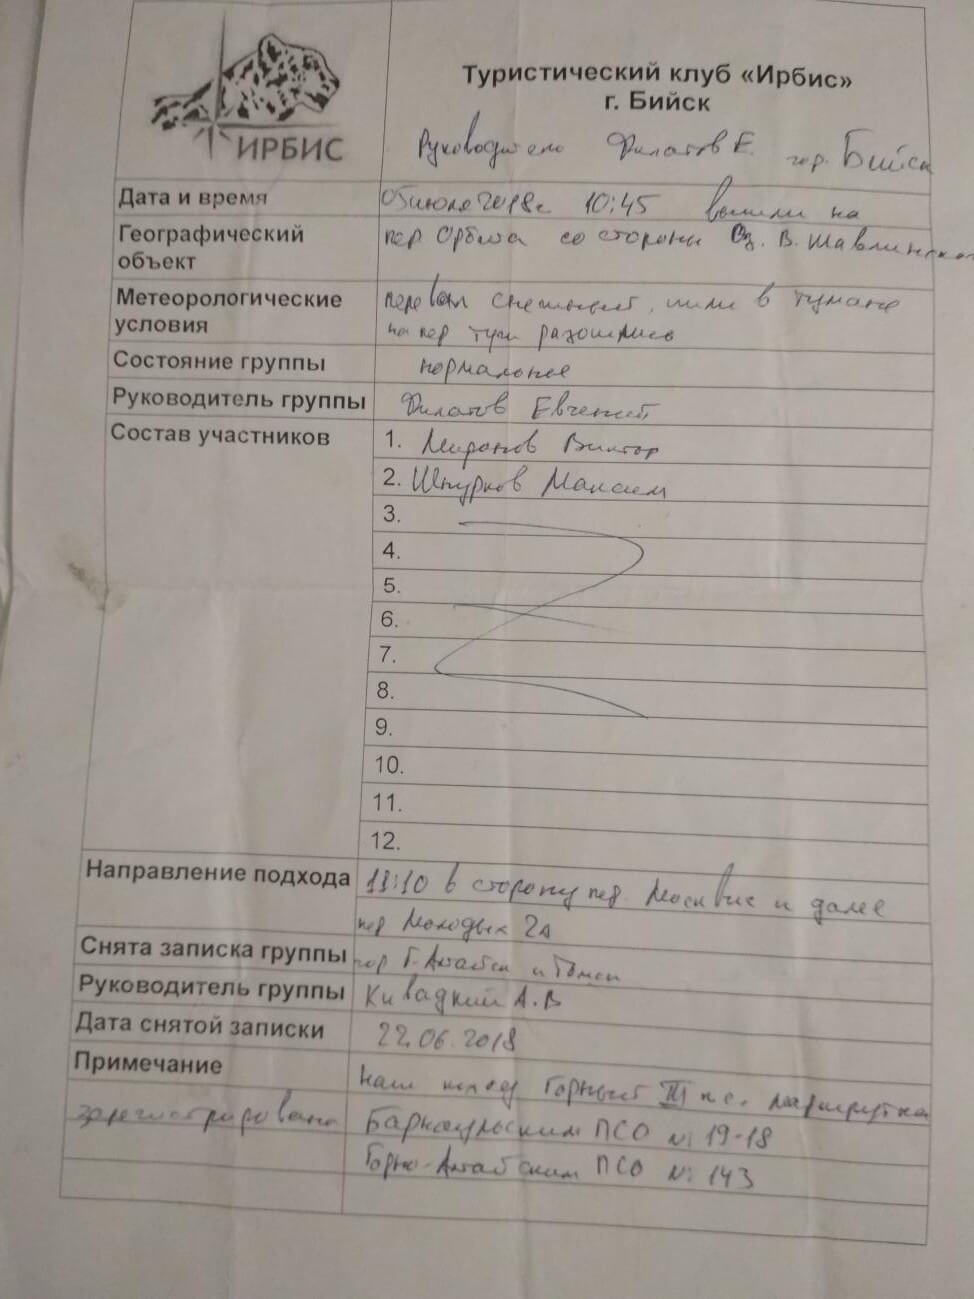 ИРБИС
Туристический клуб «Ирбис»
г. Бийск
Руководитель Филатов Е. гор. Бийск
Дата и время 05 июля 2018г 10:45 вышли на
Географический объект пер. Орбита со стороны Оз. В. Шавлинское
Метеорологические условия перевал снежный, шли в тумане
на пер тучи разошлись
Состояние группы нормальное
Руководитель группы Филатов Евгений
Состав участников 1. Миронов Виктор
2. Шпурков Максим
3.
4.
5.
6.
7.
8.
9.
10.
11.
12.
Направление подхода 11:10 в сторону пер. Москвич и далее
пер Молодых 2А
Снята записка группы гор Г-Алтайск и Томск
Руководитель группы Кивацкий А.В
Дата снятой записки 22.06.2018
Примечание наш поход Горный III к.с. маршрутка
зарегистрирована Барнаульским ПСО № 19-18
Горно-Алтайским ПСО № 143